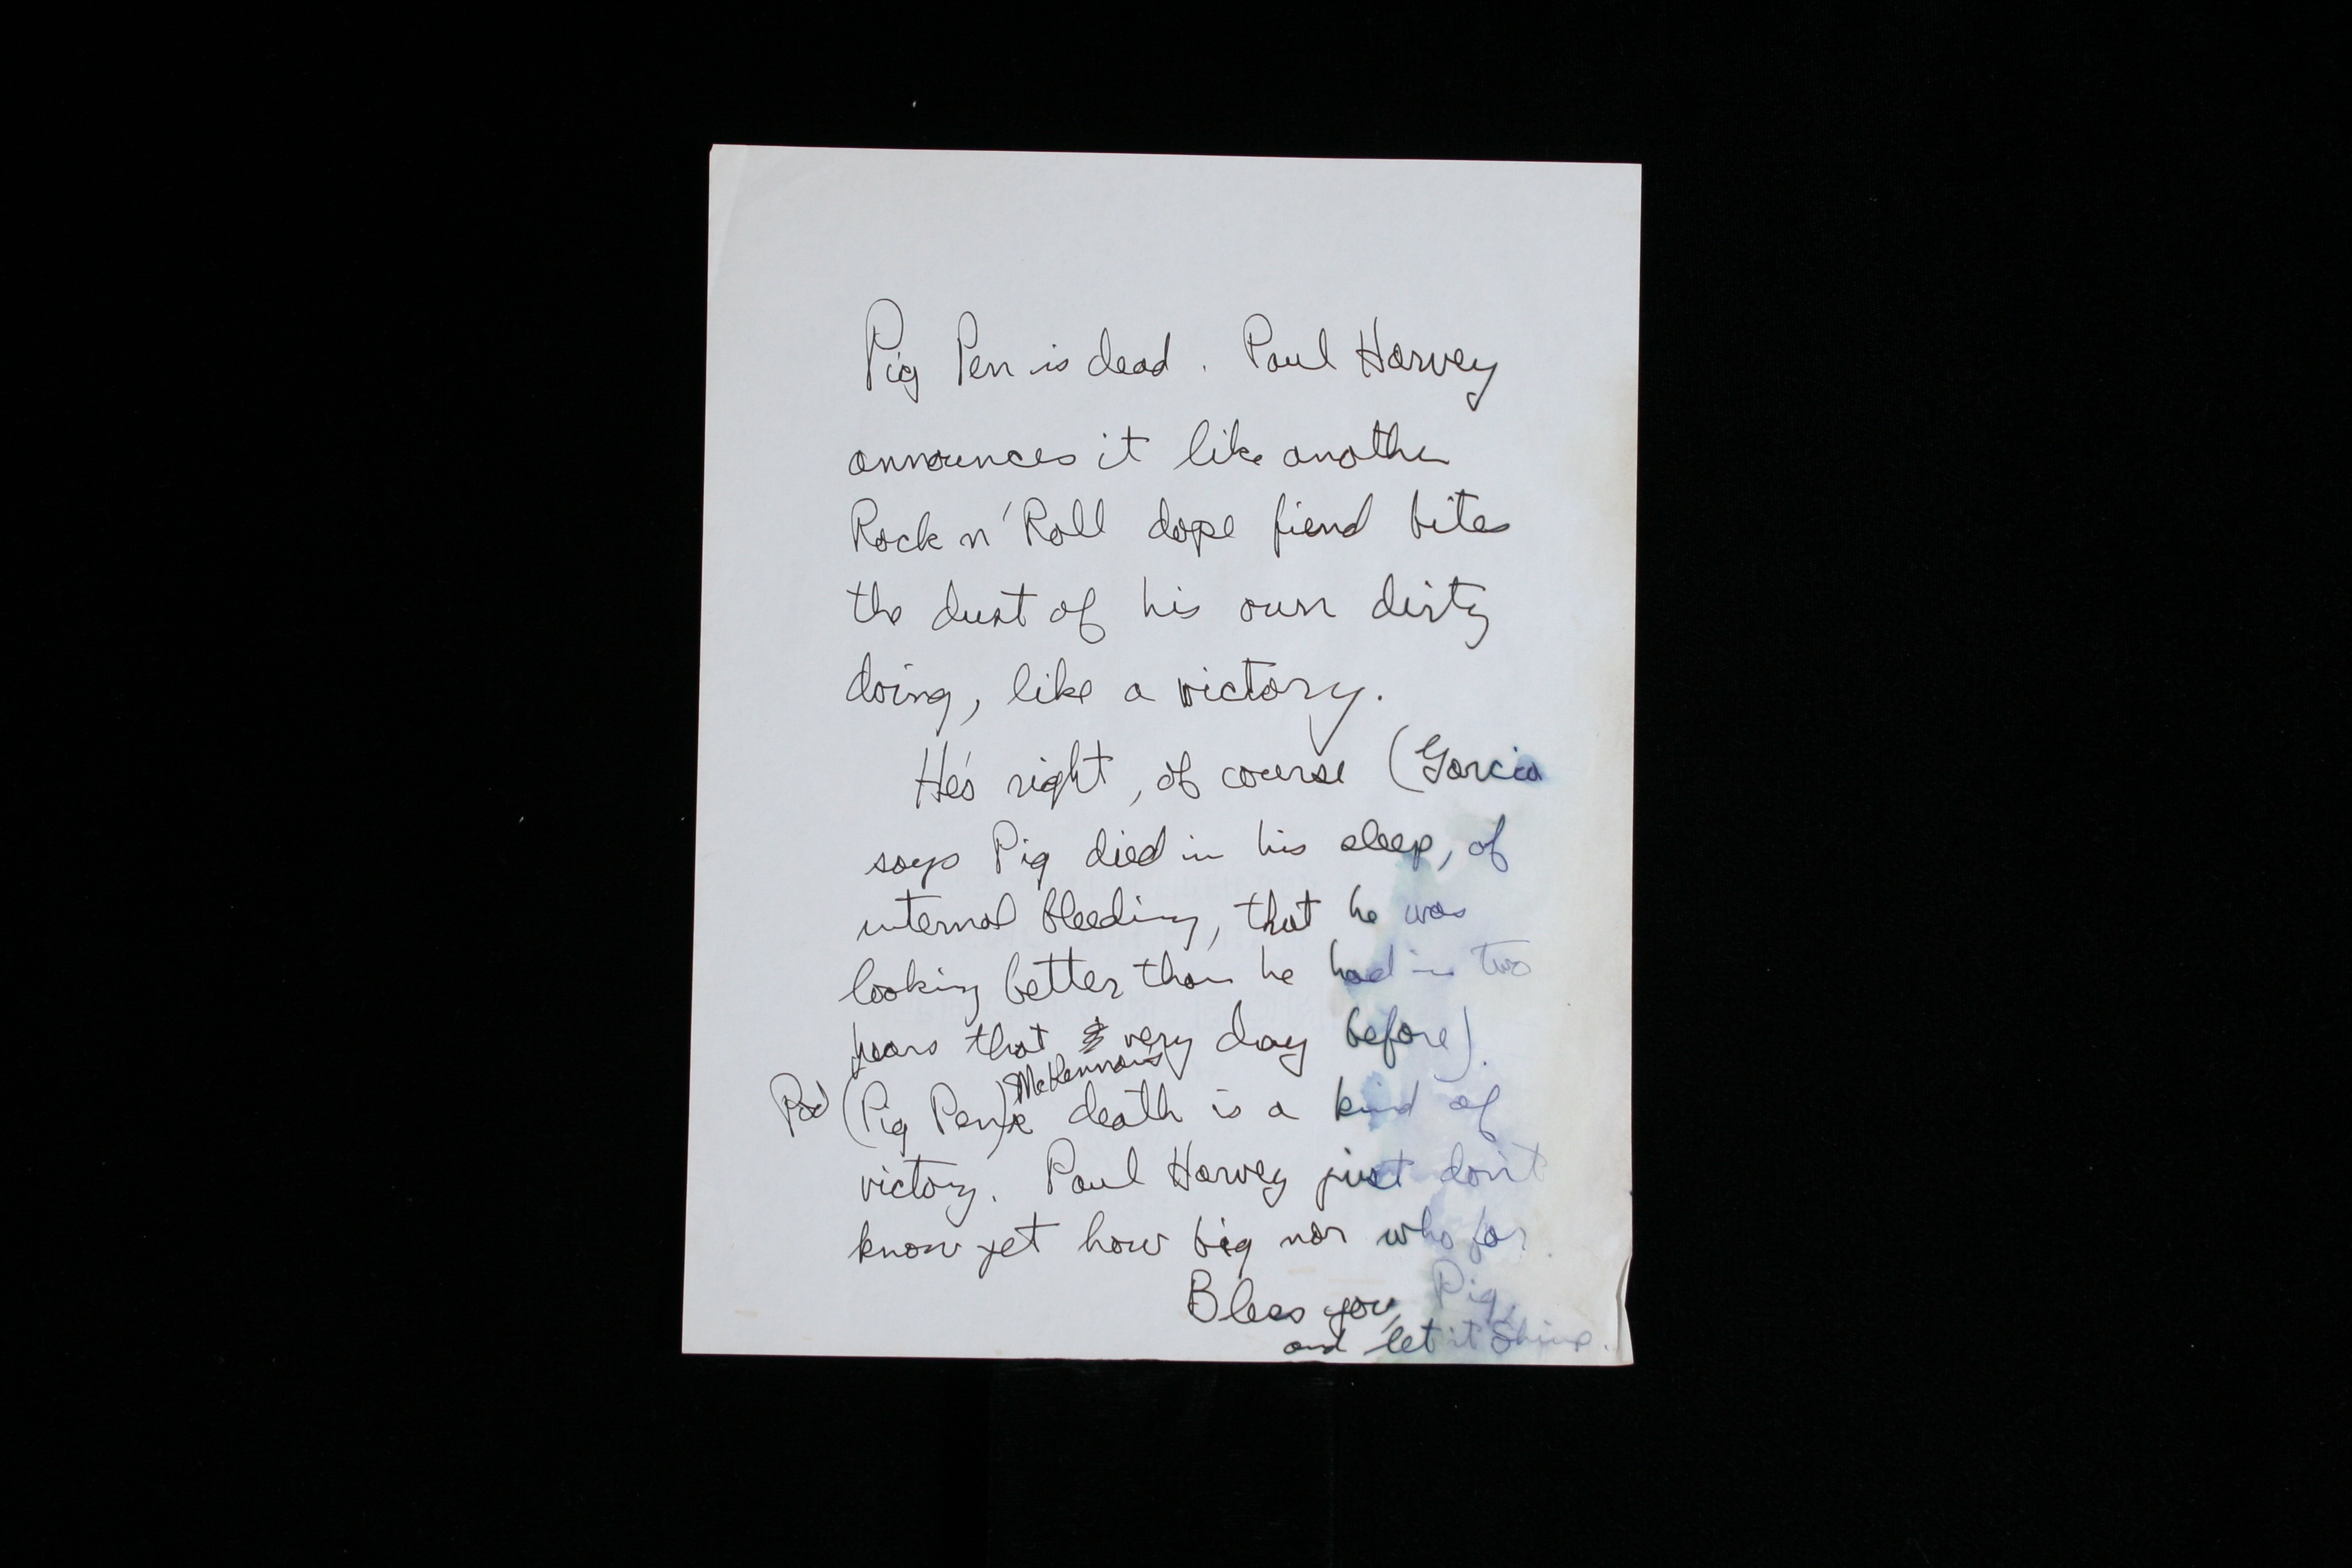 Pig Pen is dead. Paul Harvey
announces it like another
Rock n' Roll dope fiend bites
the dust of his own dirty
doing, like a victory.
He's right, of course (Garcia
says Pig died in his sleep, of
internal bleeding, that he was
looking better than he had in two
years that very day before).
McKennans
(Pig Pen) death is a kind of
victory. Paul Harvey just don't
know yet how big nor who for.
Bless you, Pig,
and let it shine.